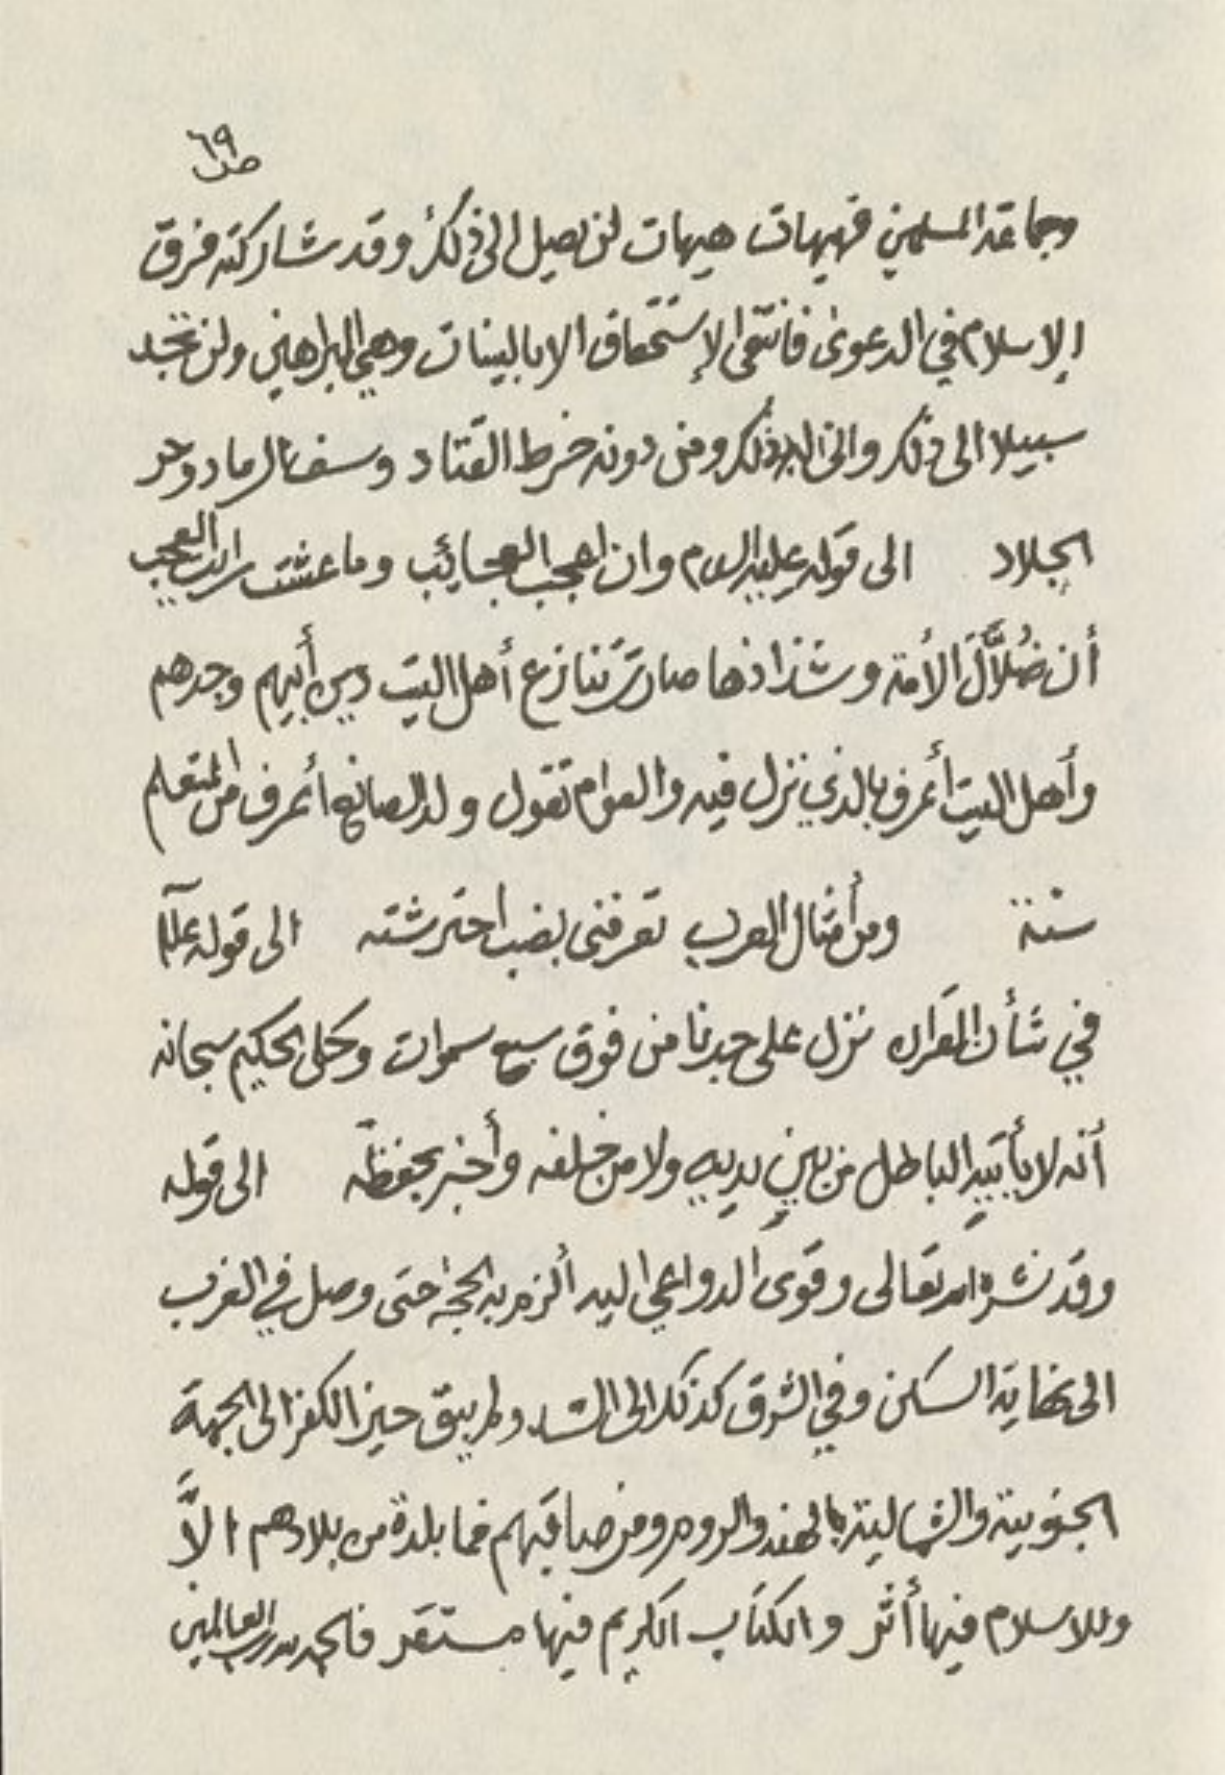 ٦٩
ص
وجماعة المسلمين فهيهات هيهات لن يصيل الى ذلك وقد شاركته فرق
الإسلام في الدعوى فانتفى الإستحقاق الا بالبينات وهي البراهين ولن تجد
سبيلا الى ذلك وانى له ذلك ومن دونه خرط القتاد وسف الرماد وحر
الجلاد الى قوله عليه السلام وان اعجب العجايئب وما عشت رايت العجب
أن ضُلاَّلَ الأمة وشذاذها صارت تنازع أهل البيت دين أبيهم وجدهم
وأهل البيت أعرف بالذي نزل فيه والعوام تقول ولد الصانع أعرف من المتعلم
سنة ومن أمثال العرب تعرفنى بضب احترشته الى قوله علم
في شأن القران نزل على جدنا من فوق سبع سموات وحكى الحكيم سبحانه
أنه لا يأتيه الباطل من بين يديه ولا من خلفه وأخبر بحفظه الى قوله
وقد نشره الله تعالى وقوى الدواعي اليه ألزم به الحجة حتى وصل في الغرب
الى نهاية السكن وفي الشرق كذلك الى ولم يبق حيز الكفر الى الجهة
الجنوبية والشمالية بالهند والروم ومن صاقبهم فما بلدة من بلادهم الاَّ
وللاسلام فيها أثر والكتاب الكريم فيها مستقر فالحمد لله رب العالمين